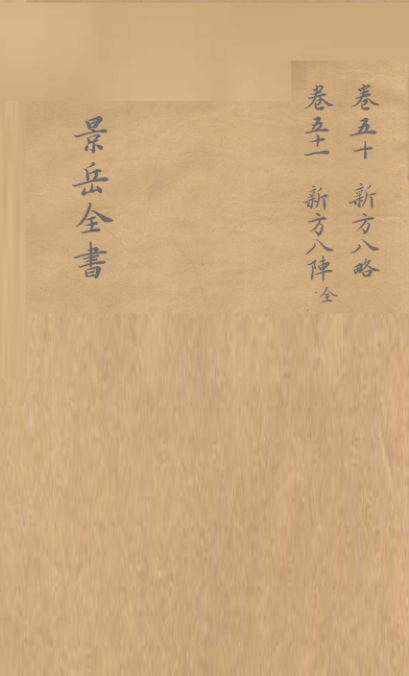 卷五十 新方八略
卷五十一 新方八陣 全
景岳全書